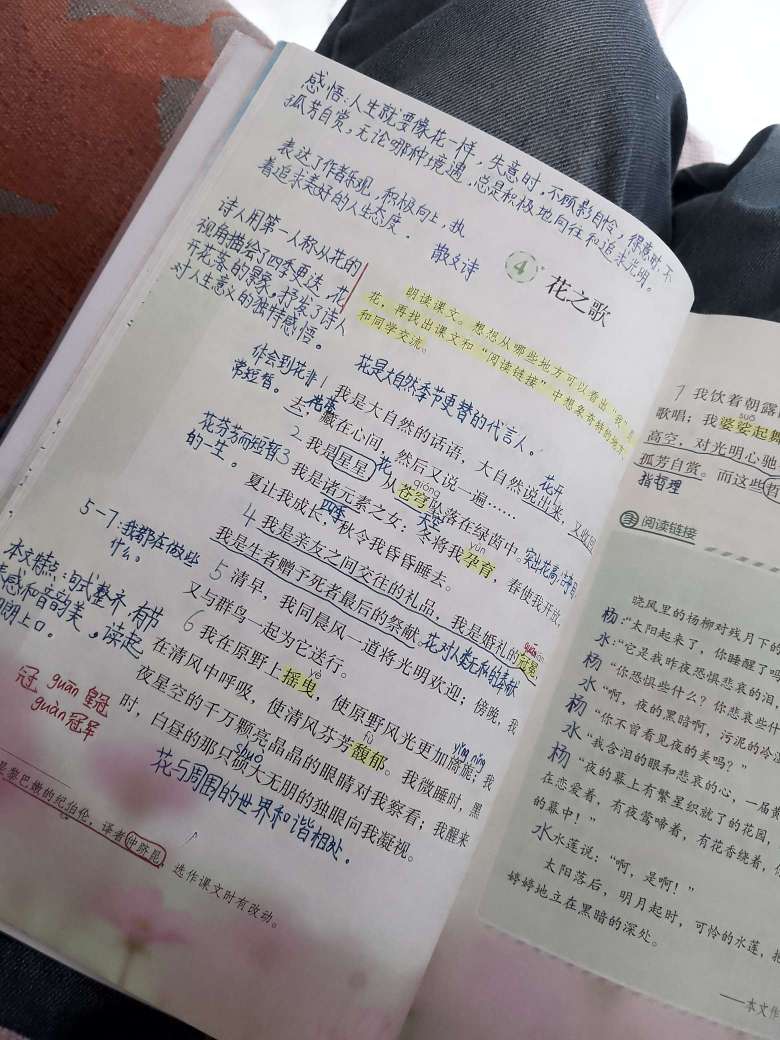 感悟:人生就要像花一样,失意时,不顾影自怜;得意时,不
孤芳自赏,无论哪种境遇,总是积极地向往和追求光明。
表达了作者乐观,积极向上,执
着追求美好的人生态度。
散文诗
诗人用第一人称从花的
视角描绘了四季更迭,花
开花落的景象,抒发了诗人
对人生意义的独特感悟。
4 花之歌
朗读课文。想想从哪些地方可以看出“我”是
花,再找出课文和“阅读链接”中想象奇特的地方,
和同学交流。
花是大自然季节更替的代言人。
体会到花非
常短暂。
1 我是大自然的话语,大自然说出来,又收回
花开
去,藏在心间,然后又说一遍……
花落
2 我是星星,从苍穹坠落在绿茵中。
花
qióng
天空
突出花高洁
花芬芳而短暂
的一生。
3 我是诸元素之女:冬将我孕育,春使我开放,
yùn
四季
夏让我成长,秋令我昏昏睡去。
4 我是亲友之间交往的礼品,我是婚礼的冠冕,
我是生者赠予死者最后的祭献。
花对人类无私的奉献
5-7:我都在做些
什么。
5 清早,我同晨风一道将光明欢迎;傍晚,我
又与群鸟一起为它送行。
本文特点:句式整齐,有节
感和音韵美。读起
朗上口。
6 我在原野上摇曳,使原野风光更加旖旎;我
yè
在清风中呼吸,使清风芬芳馥郁。我微睡时,黑
fù
夜星空的千万颗亮晶晶的眼睛对我察看;我醒来
shuò
时,白昼的那只硕大无朋的独眼向我凝视。
花与周围的世界和谐相处。
冠 guān 皇冠
guàn 冠军
是黎巴嫩的纪伯伦,译者仲跻昆,选作课文时有改动。
7 我饮着朝露
歌唱;我婆娑起舞
suō
高空,对光明心驰
孤芳自赏。而这些哲
指哲理
阅读链接
晓风里的杨柳对残月下的
杨:“太阳起来了,你睡醒了吗
水:“它是我昨夜恐惧悲哀的泪,
杨 “你恐惧些什么?你悲哀些什
水 “啊,夜的黑暗啊,污泥的冷湿
杨 “你不曾看见夜的美吗?”
水 “我含泪的眼和悲哀的心,一届黄
杨 “夜的幕上有繁星织就了的花园,
在恋爱着,有夜莺啼着,有花香绕着,你
的幕中!”
水 水莲说:“啊,是啊!”
太阳落后,明月起时,可怜的水莲,抱
婷婷地立在黑暗的深处。
——本文作